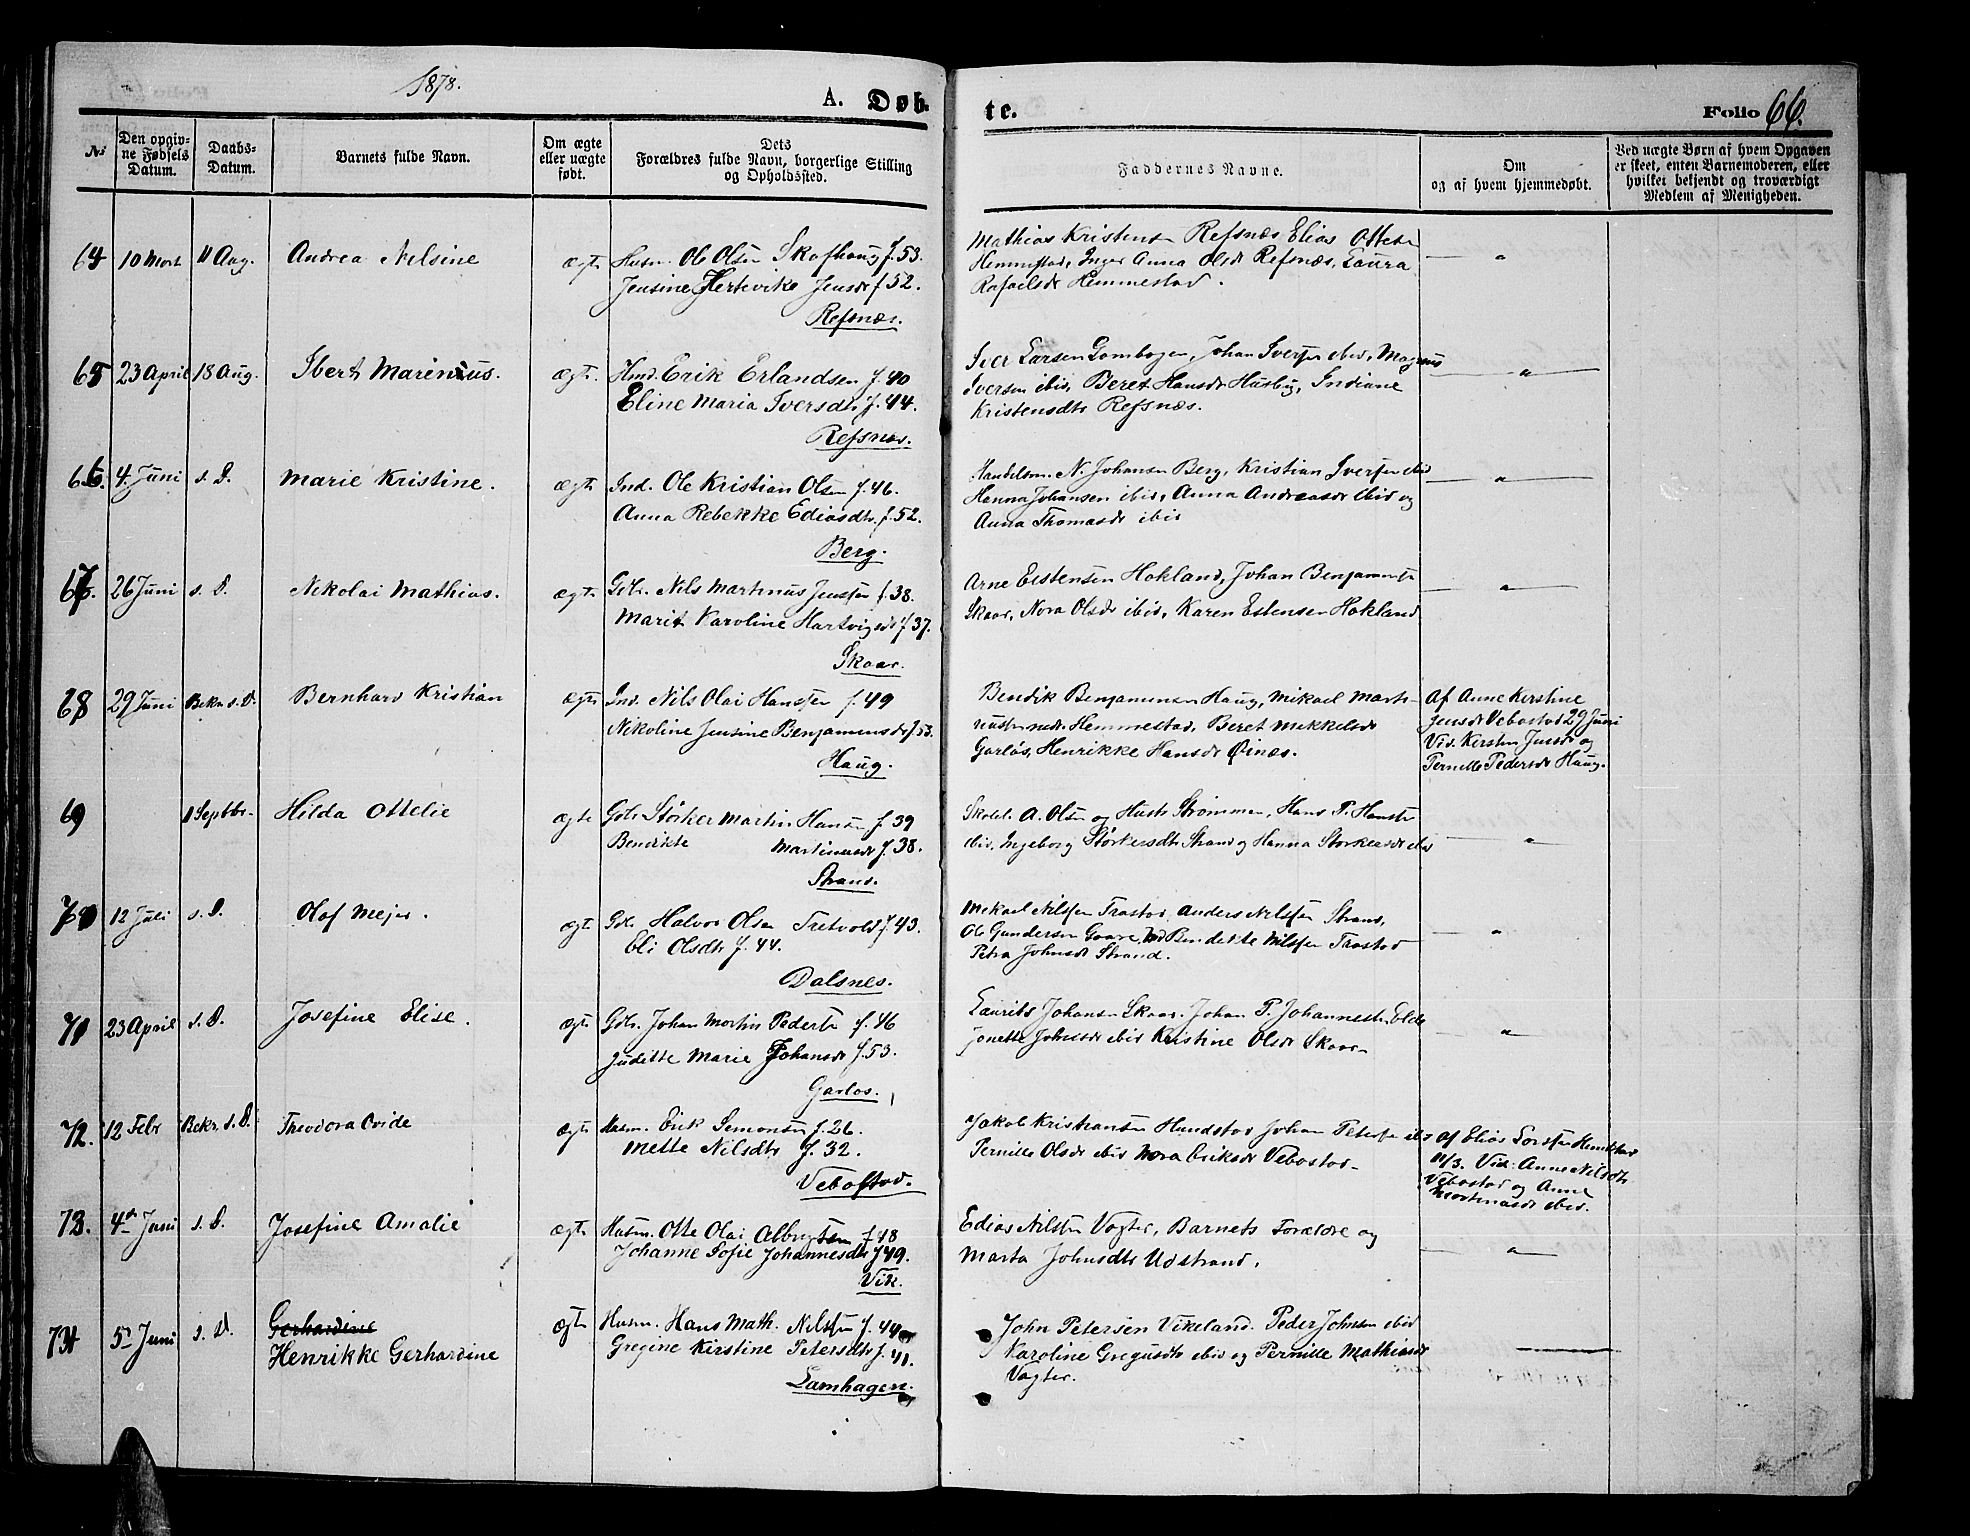 1878.
A. Døb-
te.
Folio 66.
No
Den opgiv-
ne Fødsels
Datum.
Daabs-
Datum.
Barnets fulde Navn.
Om ægte
eller uægte
født.
Dets
Forældres fulde Navn, borgerlige Stilling
og Opholdssted.
Faddernes Navne.
Om
og af hvem hjemmedøbt.
Ved uægte Børn af hvem Opgaven
er skeet, enten Barnemoderen, eller
hvilket bekjendt og troværdigt
Medlem af Menigheden.
64 10 Mart 11 Aug. Andrea Nelsine ægte Husm. Ole Olsen Skafhaug f. 53.
Jensine Hertevike Jensdr f. 52.
Refsnæs.
Mathias Kristensen Refsnæs, Elias Ottesen
Hemmestad, Inger Anna Olsdr Refsnæs, Laura
Rafaelsdr Hemmestad.
"
65 23 April 18 Aug. Ibert Marenius. ægte. Hmd. Erik Erlandsen f. 40
Eline Maria Iversdtr f. 44.
Refsnæs.
Iver Larsen Gombogen, Johan Iversen ibid, Magnus
Iversen ibid, Beret Hansdr Husby, Indiane
Kristensdtr Refsnæs.
"
66. 4. Juni s. D. Marie Kristine. ægte Ind. Ole Kristian Olsen f. 46.
Anna Rebekke Ediasdtr. f. 52.
Berg.
Handelsm. N. Johansen Berg, Kristian Iversen ibid
Hanna Johansen ibid, Anna Andreasdr ibid og
Anna Thomasdr ibid
"
67. 26 Juni s. D. Nikolai Mathias. ægte Gdbr. Nils Martinus Jenssen f. 38.
Marit Karoline Hartvigsdr f. 37.
Skaar.
Arne Estensen Hokland, Johan Benjaminsen
Skaar, Nora Olsdr ibid, Karen Estensen Hokland
"
68 29 Juni Bekr. s. D. Bernhard Kristian ægte Ind. Nils Olai Hanssen f. 49
Nikoline Jensine Benjaminsdr f. 53.
Haug.
Bendik Benjaminsen Haug, Mikael Marti-
nussen Hemmestad, Beret Mikkelsdr
Garløs, Henrikke Hansdr Øinæs.
Af Anne Kerstine
Jensdr Vebostad 29 Juni
Vid. Kersten Jensdr og
Pernille Pedersdr Haug.
69 1 Septbr. Hilda Ottelie ægte Gdbr Størker Martin Hansen f. 39
Bendikte Martinusdr f. 38.
Strand.
Skolel. A. Olsen og Hustr Strømmen, Hans P. Hansen
ibid. Ingeborg Størkersdtr Strand og Hanna Størkersdr ibid
"
70 12 Juli s. D. Olaf Mejer. ægte Gdbr Halvor Olsen Tretvold f. 43.
Eli Olsdtr f. 44.
Dalsnes.
Mekael Nilssen Trastad, Anders Nilssen Strand,
Ole Gundersen Gaare, Bendekte Nilssen Trastad
Petra Johnsdr Strand.
"
71 23 April s. D. Josefine Elise. ægte Gdbr. Johan Martin Pedersen f. 46
Juditte Marie Johansdr f. 53.
Garløs.
Laurits Johansen Skaar. Johan P. Johannessen Elde
Jonette Johnsdr ibid Kristine Olsdr Skaar
"
72. 12 Febr Bekr. s. D. Theodora Ovide ægte Husm. Erik Semonsen f. 26.
Mette Nilsdtr f. 32.
Vebostad.
Jakob Kristiansen Hundstad Johan Petersen ibid
Pernille Olsdr ibid Nora Eriksdr Vebostad
Af Elias Larssen Hundstad
11/3. Vid. Anne Nilsdtr
Vebostad og Anne
Mortinasdr ibid.
73. 4de Juni s. D. Josefine Amalie ægte Husm. Otte Olai Albrigtsen f. 48
Johanne Sofie Johannesdtr f. 49.
Vik.
Edias Nilsen Vogter, Barnets Forældre og
Marta Johnsdtr Udstrand.
"
74 5 Juni s. D. Gerhardine
Henrikke Gerhardine ægte Husm. Hans Math. Nilssen f. 44
Gregine Kirstine Petersdtr f. 41.
Lamhagen.
John Petersen Vikeland. Peder Johnsen ibid
Karoline Gregusdtr ibid og Pernille Mathiasdr
Vogter.